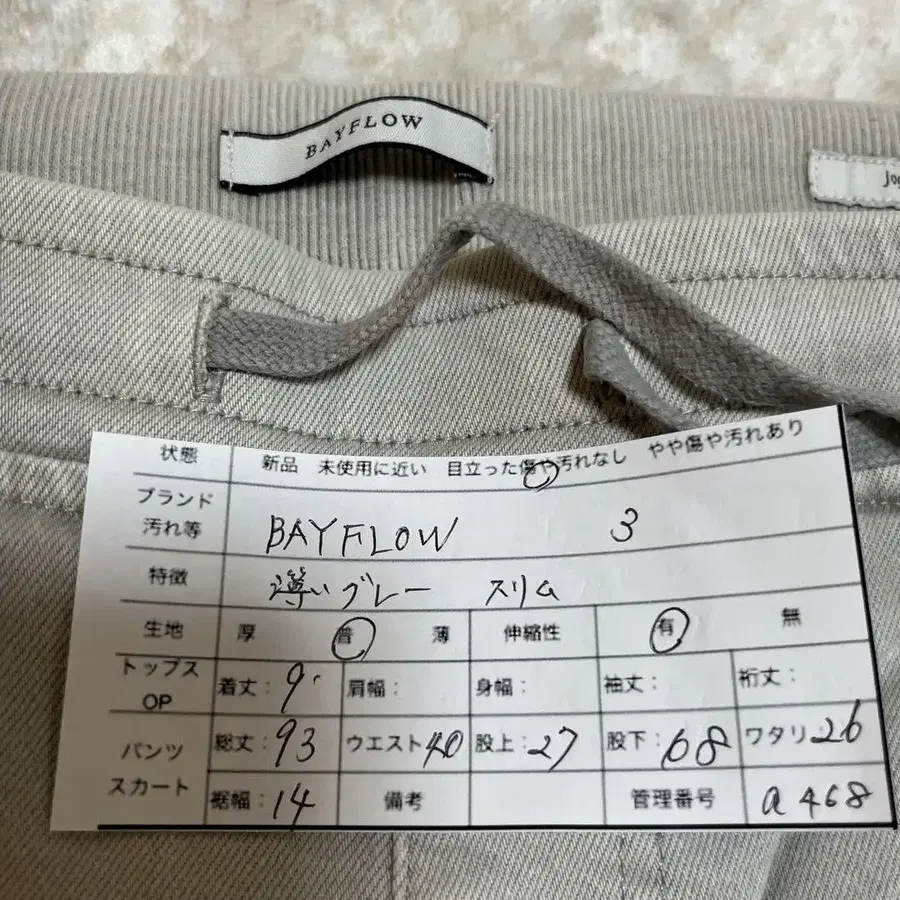 BAYFLOW
Jog
状態 新品 未使用に近い 目立った傷や汚れなし やや傷や汚れあり
ブランド
汚れ等 BAYFLOW 3
特徴 薄いグレー スリム
生地 厚 普 薄 伸縮性 有 無
トップス
OP 着丈: 9 肩幅: 身幅: 袖丈: 裄丈:
パンツ
スカート 総丈:93 ウエスト40 股上:27 股下:68 ワタリ:26
裾幅:14 備考 管理番号 a468